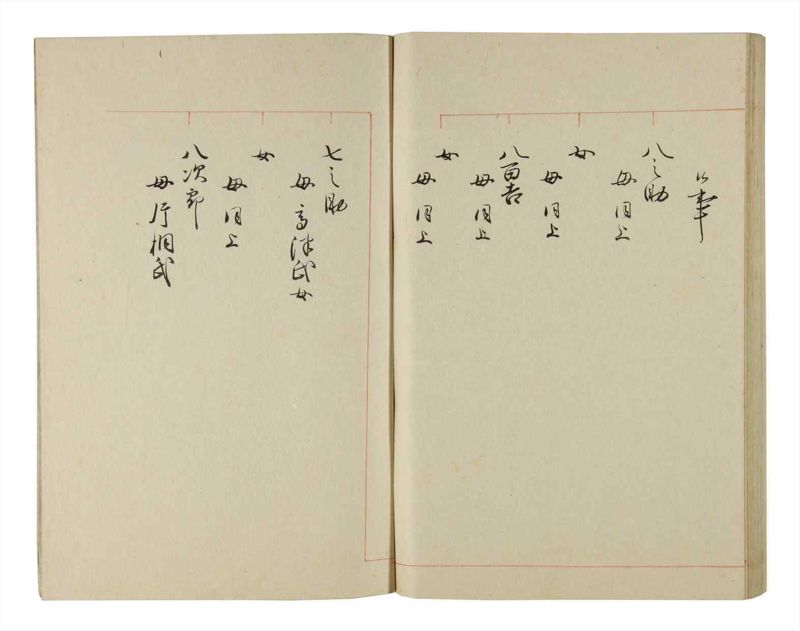 八之助
母同上
女
母同上
八百吉
母同上
女
母同上
七之助
母高津氏女
女
母同上
八次郎
母片桐氏